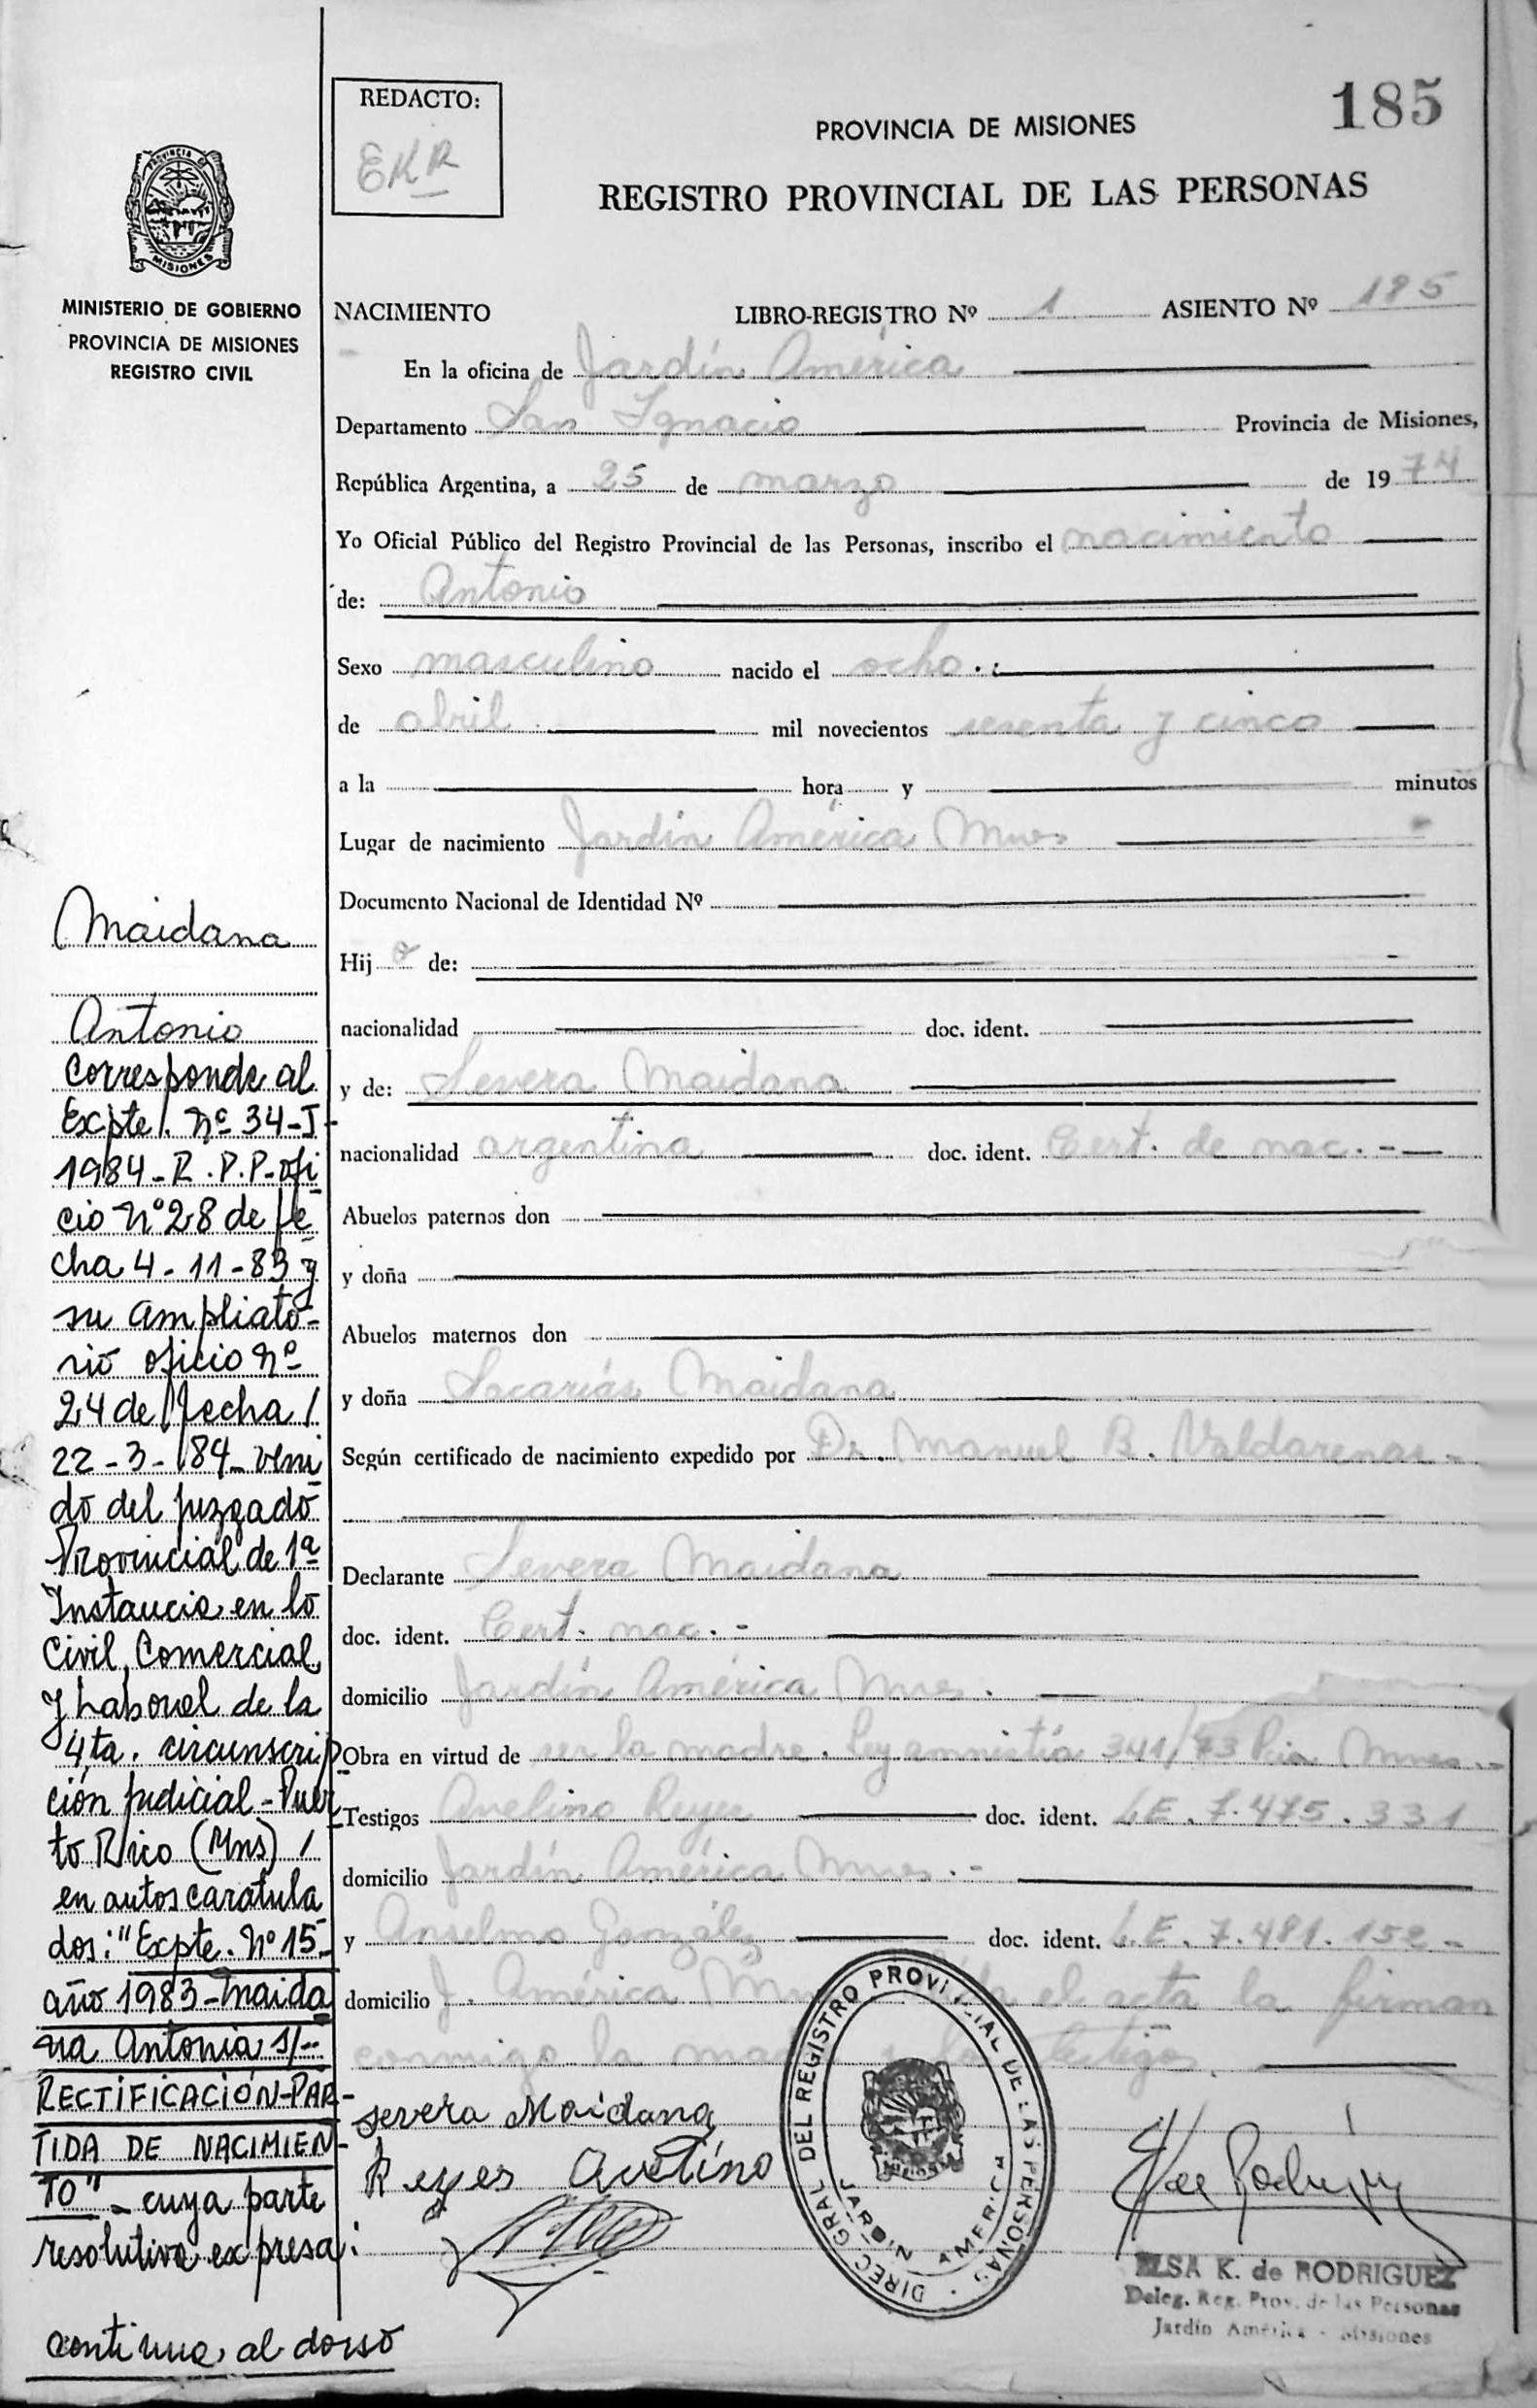 185
REDACTO:
EKR
PROVINCIA DE MISIONES
REGISTRO PROVINCIAL DE LAS PERSONAS
PROVINCIA DE
MISIONES
MINISTERIO DE GOBIERNO
PROVINCIA DE MISIONES
REGISTRO CIVIL
NACIMIENTO LIBRO-REGISTRO Nº 1 ASIENTO Nº 185
En la oficina de Jardín América
Departamento San Ignacio Provincia de Misiones,
República Argentina, a 25 de marzo de 1974
Yo Oficial Público del Registro Provincial de las Personas, inscribo el nacimiento
de: Antonio
Sexo masculino nacido el ocho
de abril mil novecientos sesenta y cinco
a la hora y minutos
Lugar de nacimiento Jardín América Mnes
Documento Nacional de Identidad Nº
Hijo de:
nacionalidad doc. ident.
y de: Severa Maidana
nacionalidad argentina doc. ident. Cert. de nac. -
Abuelos paternos don
y doña
Abuelos maternos don
y doña Sacarias Maidana
Según certificado de nacimiento expedido por Dr. Manuel B.
Declarante Severa Maidana
doc. ident. Cert. nac. -
domicilio Jardín América Mnes.
Obra en virtud de ser la madre. Ley amnistía 341/73 Pcia Mnes.-
Testigos Avelino Reyes doc. ident. L.E. 7.475.331
domicilio Jardín América Mnes. -
y Anselmo González doc. ident. L.E. 7.481.152-
domicilio J. América el acta la firman
conmigo la y los testigos.
severa Maidana
Reyes Avelino
DIREC. GRAL. DEL REGISTRO PROVINCIAL DE LAS PERSONAS
JARDIN AMERICA
MISIONES
ELSA K. de RODRIGUEZ
Deleg. Reg. Prov. de las Personas
Jardín América - Misiones
Maidana
Antonio
Corresponde al
Expte. Nº 34-J-
1984-R.P.P-ofi
cio Nº 28 de fe
cha 4-11-83 y
su ampliato-
rio oficio Nº
24 de fecha /
22-3-84- veni
do del juzgado
Provincial de 1ª
Instancia en lo
Civil, Comercial
y Laboral de la
4ta. circunscrip
ción judicial - Puer
to Rico (Mns) /
en autos caratula
dos: "Expte. Nº 15-
año 1983-Maida
na Antonia s/-
RECTIFICACIÓN-PAR-
TIDA DE NACIMIEN-
TO" - cuya parte
resolutiva expresa:
continua al dorso